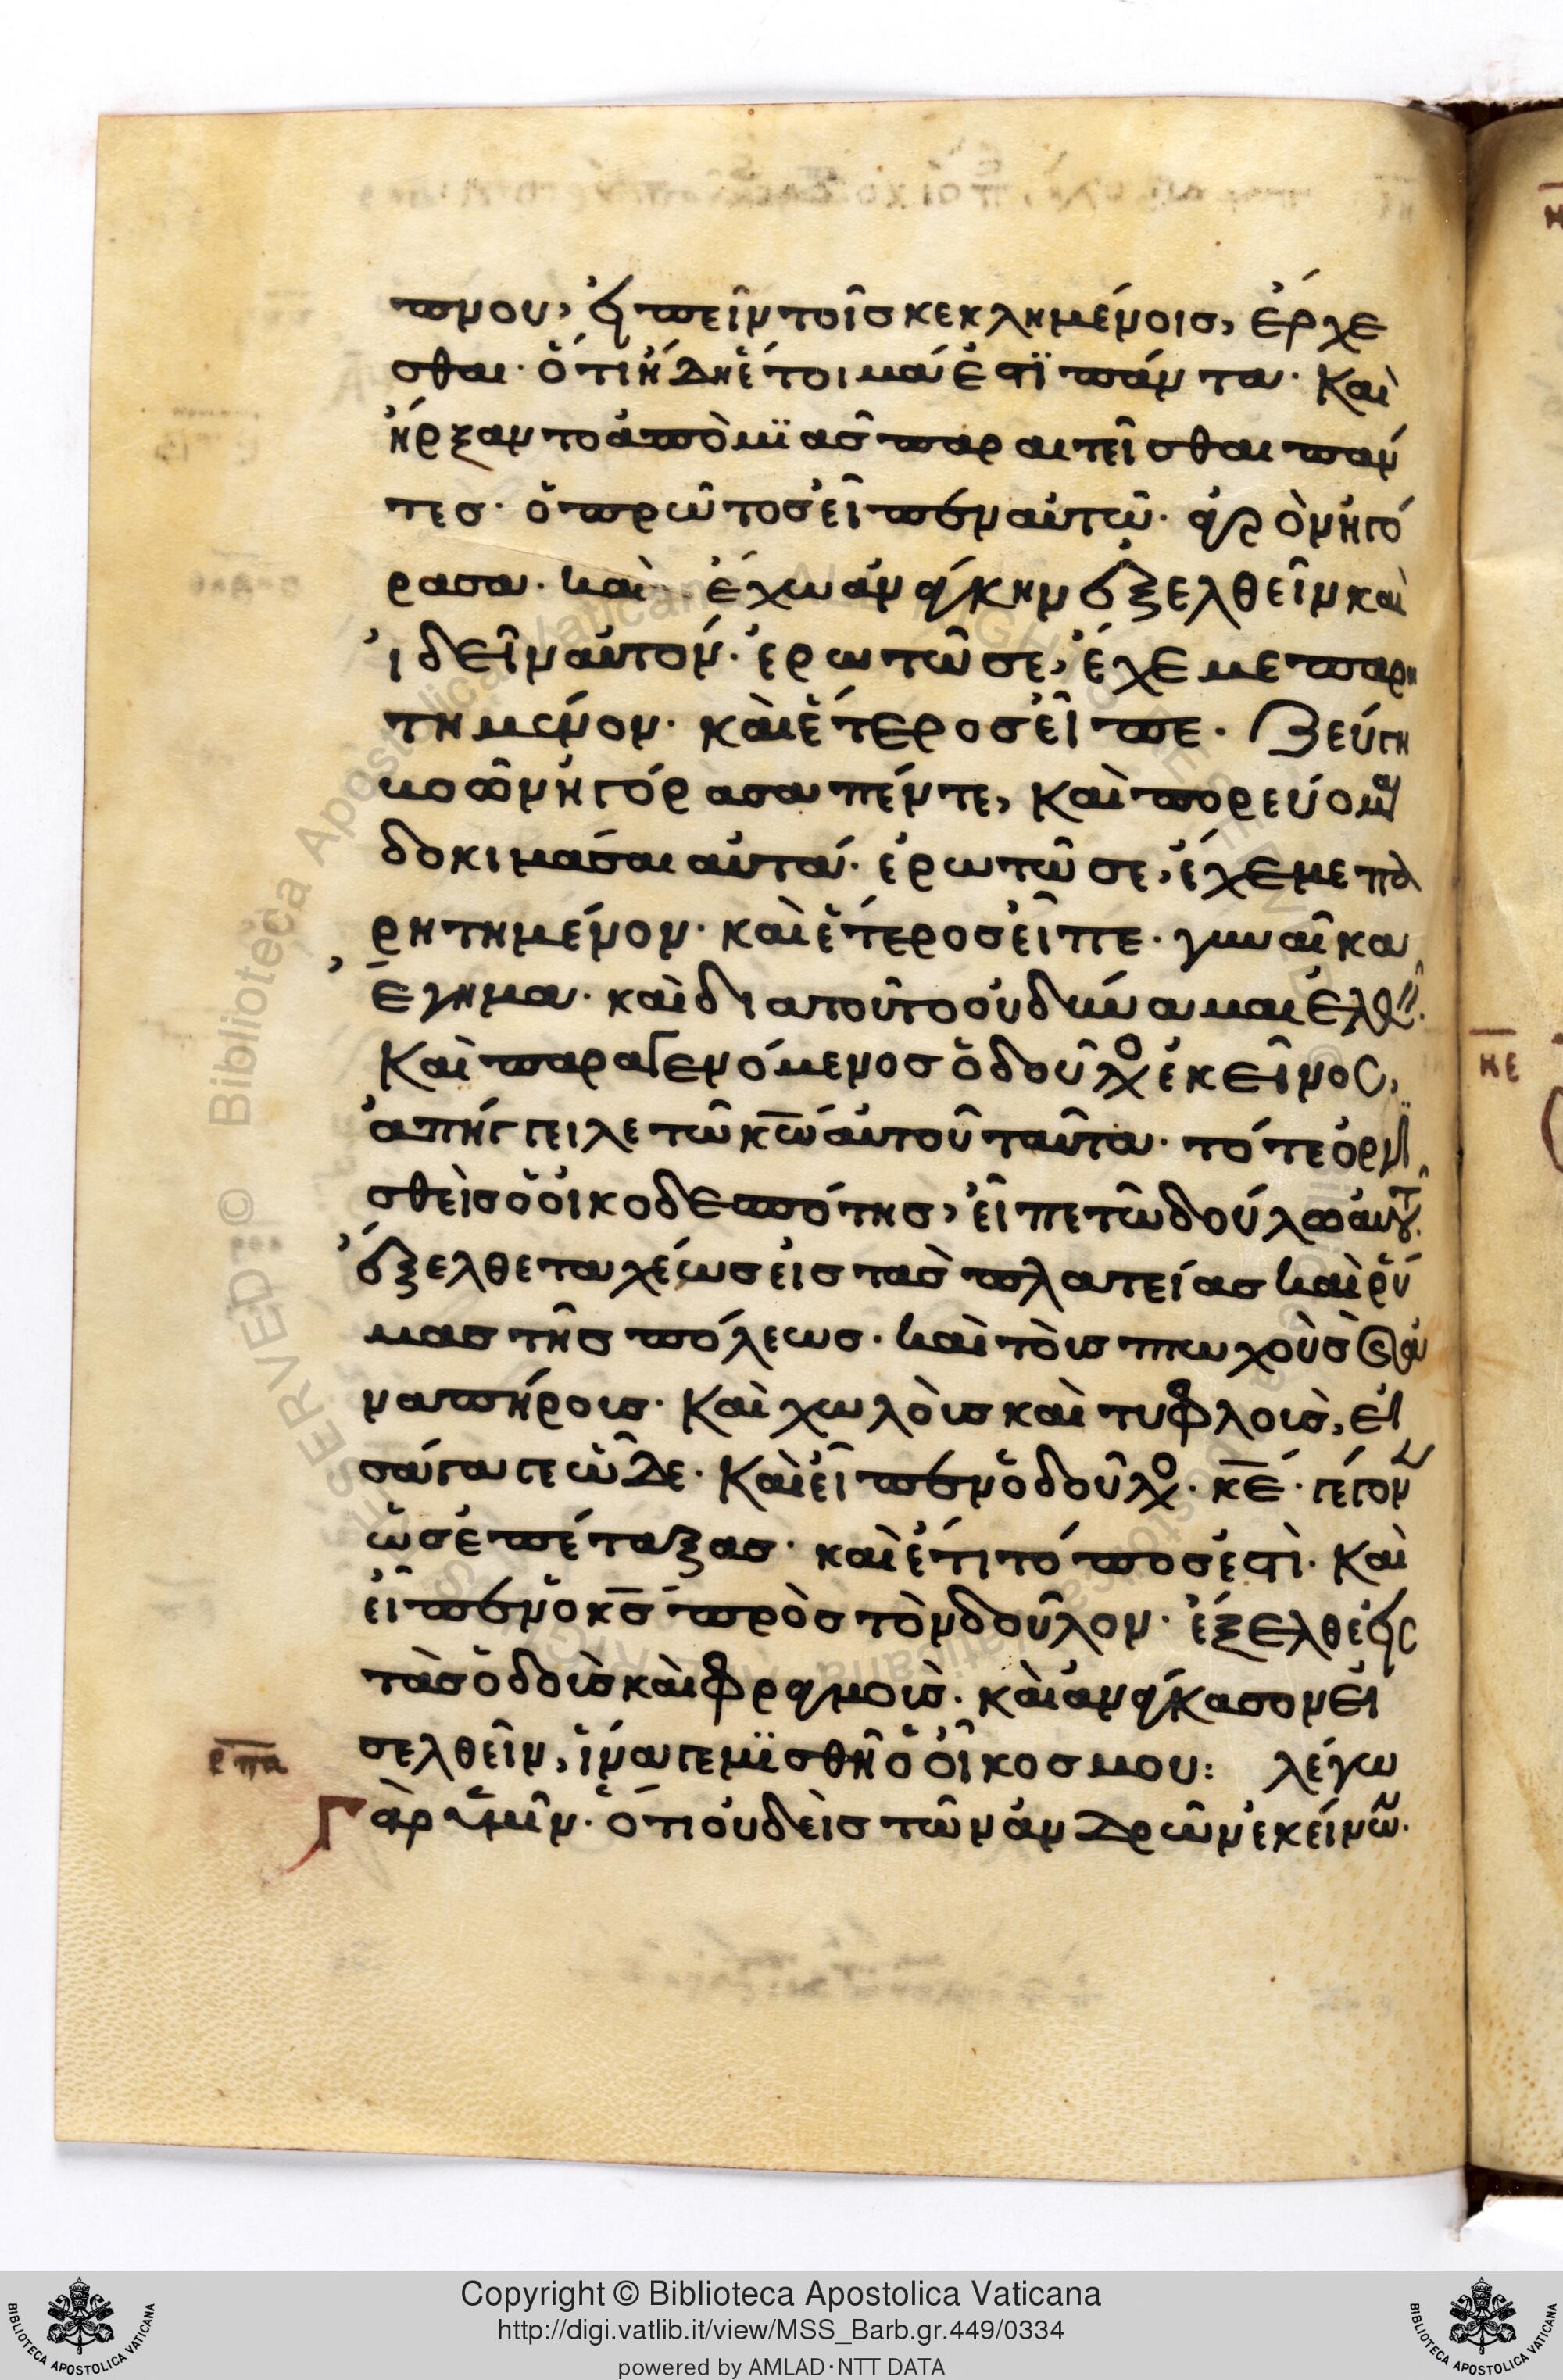 πνου, εἰπεῖν τοῖς κεκλημένοις, ἔρχε
σθαι· ὅτι ἤδη ἕτοιμά ἐστϊ πάντα· Καὶ
ἤρξαντο ἀπὸ μϊᾶς παραιτεῖσθαι πάν
τες· ὁ πρῶτος εἶπεν αὐτῶ· ἀγρὸν ἠγό
ρασα· καὶ ἔχω ἀνάγκην ἐξελθεῖν καὶ
ἰδεῖν αὐτόν· ἐρωτῶ σε, ἔχε με παρη
τημένον· καὶ ἕτερος εἶπε· Ζεύγη
βοῶν ἠγόρασα πέντε, καὶ πορεύομαι
δοκιμάσαι αὐτά· ἐρωτῶ σε, ἔχε με πα
ρητημένον· καὶ ἕτερος εἶπε· γυναῖκα
ἔγημα· καὶ διατοῦτο οὐ δύναμαι ἐλθεῖν·
Καὶ παραγενόμενος ὁ δοῦλος ἐκεῖνος,
ἀπήγγειλε τῶ κ̅ω̅ αὐτοῦ ταῦτα· τότε ὀργϊ
σθεὶς ὁ οἰκοδεσπότης, εἶπε τῶ δούλω αὐτοῦ·
ἔξελθε ταχέως εἰς τὰς πλατείας καὶ ῥύ
μας τῆς πόλεως· καὶ τοὺς πτωχοὺς καὶ ἀ
ναπήρους· Καὶ χωλοὺς καὶ τυφλοὺς, εἰ
σάγαγε ὧδε· Καὶ εἶπεν ὁ δοῦλος· κ̅ε̅· γέγονεν
ὡς ἐπέταξας· καὶ ἔτι τόπος ἐστὶ· Καὶ
εἶπεν ὁ κ̅ς̅ πρὸς τὸν δοῦλον· ἔξελθε εἰς
τὰς ὁδοὺς καὶ φραγμοὺς· καὶ ἀνάγκασον εἰ
σελθεῖν, ἵνα γεμϊσθῆ ὁ οἶκος μου: λέγω
ρπα
Γὰρ ὑμῖν· ὅτι οὐδεὶς τῶν ἀνδρῶν ἐκείνων·
κε
Copyright © Biblioteca Apostolica Vaticana
http://digi.vatlib.it/view/MSS_Barb.gr.449/0334
powered by AMLAD·NTT DATA